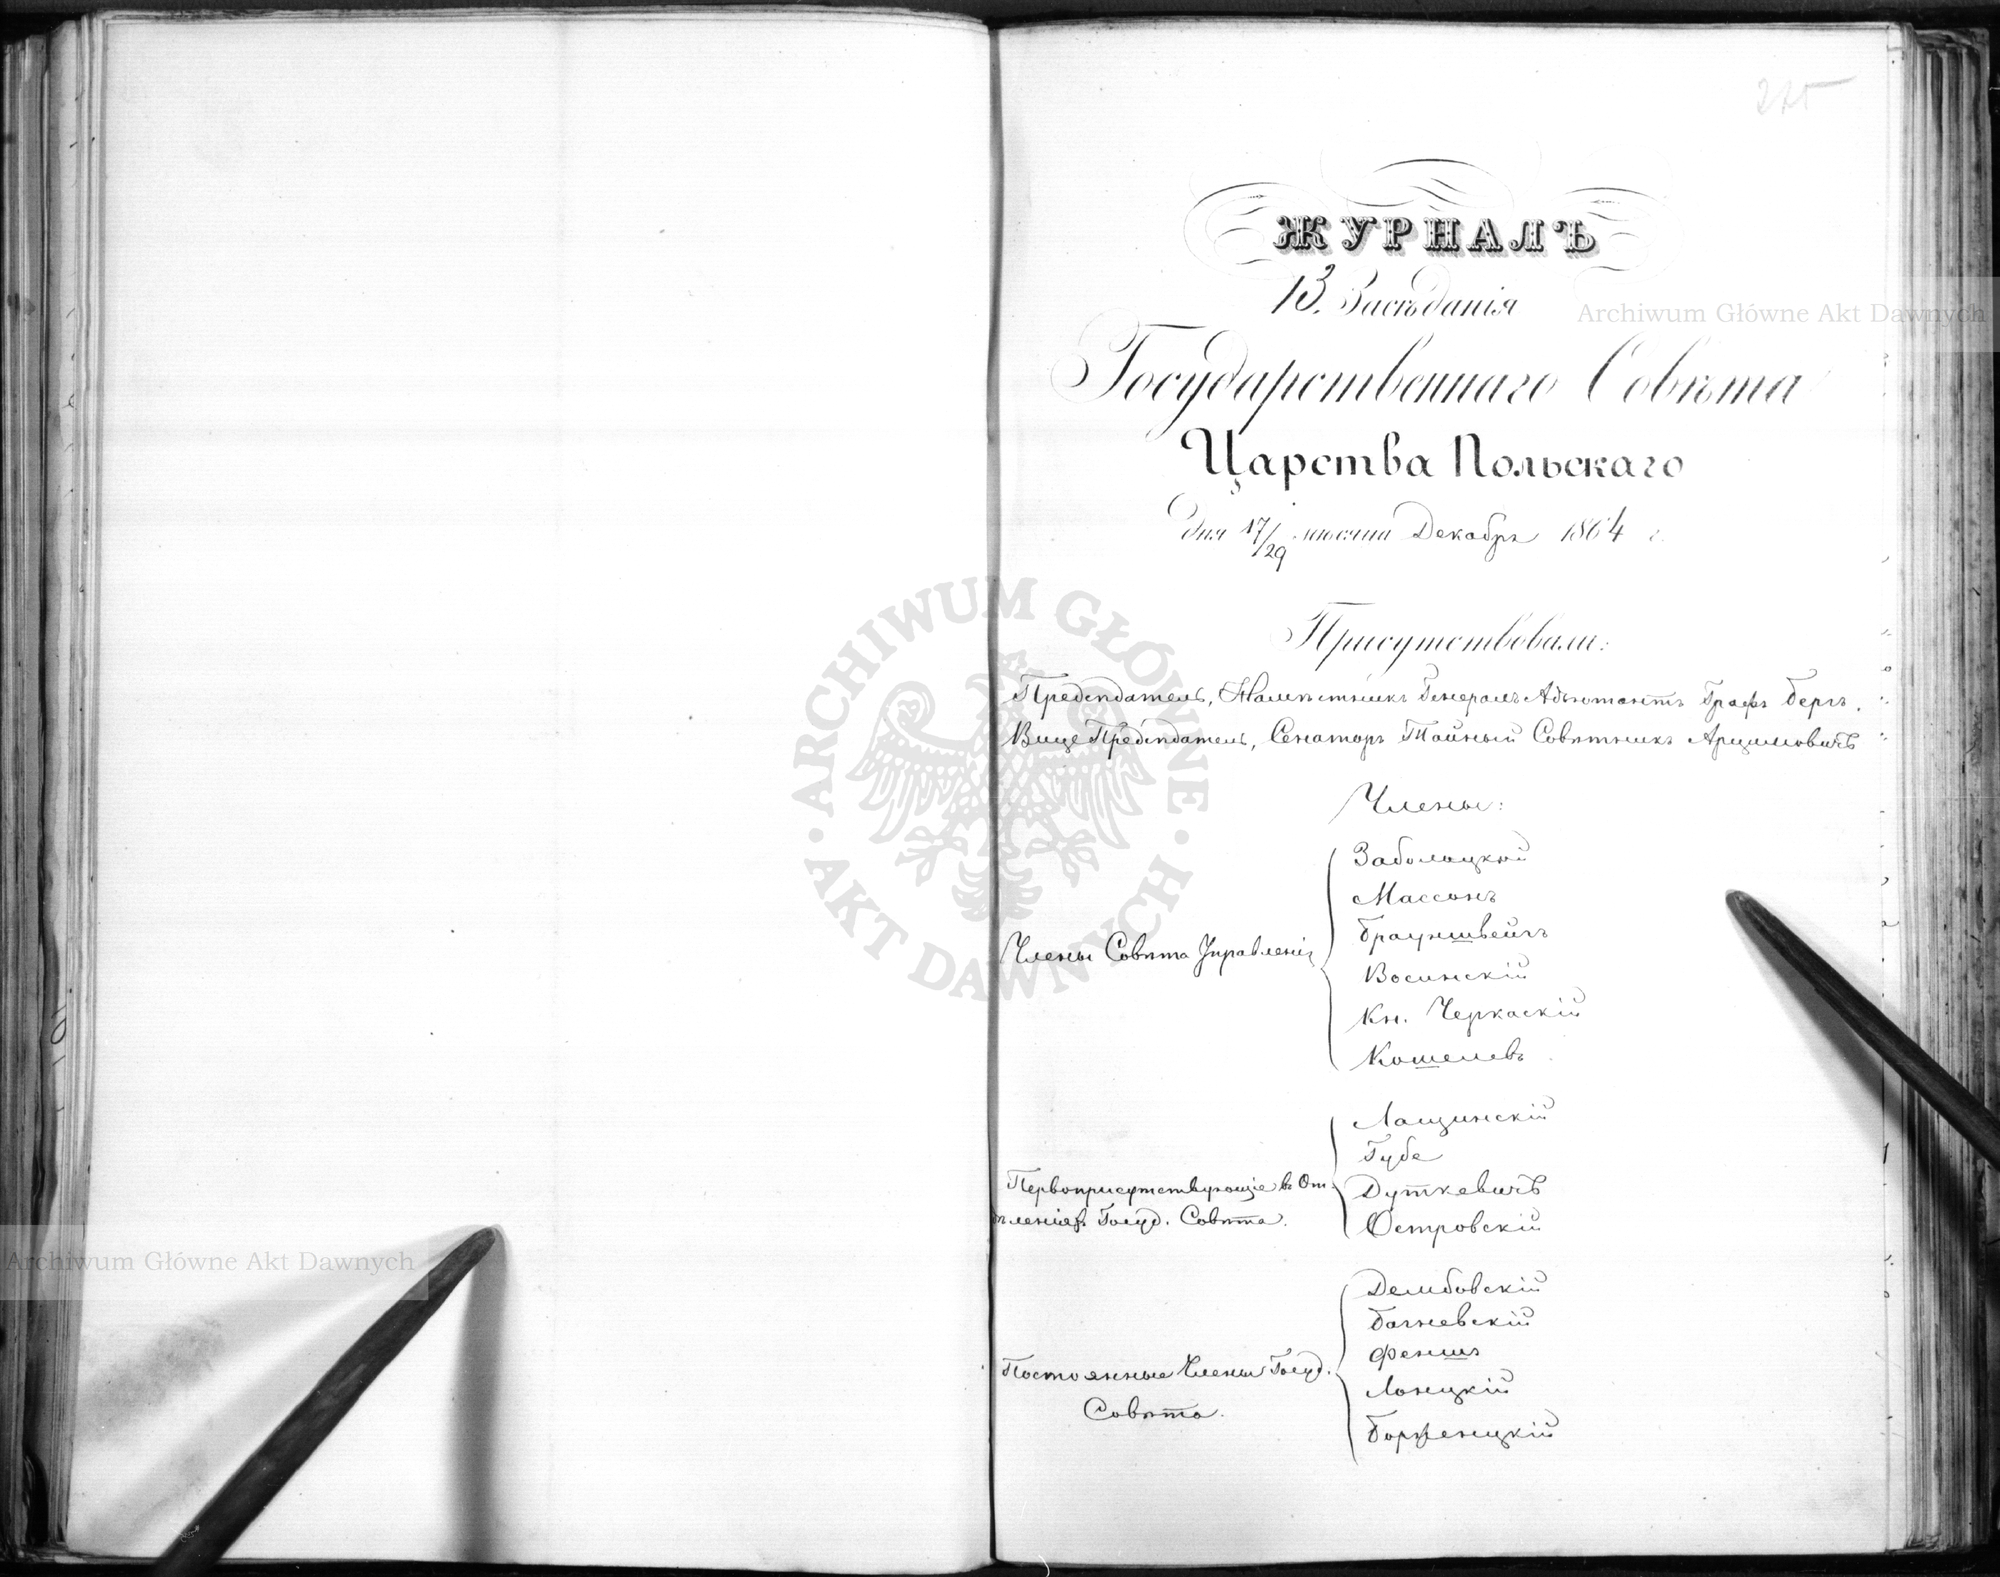 275
ЖУРНАЛЪ
13. Засѣданія
Государственнаго Совѣта
Царства Польскаго
дня 17/29 мѣсяца Декабря 1864 г.
Присутствовали:
Предсѣдатель, Намѣстникъ Генералъ Адъютантъ Графъ Бергъ.
Вице Предсѣдатель, Сенаторъ Тайный Совѣтникъ Арцимовичъ
Члены:
Члены Совѣта Управленія
Заболоцкій
Массонъ
Брауншвейгъ
Восинскій
Кн. Черкаскій
Кошелевъ
Первоприсутствующіе въ От-
дѣленіяхъ Госуд. Совѣта.
Лащинскій
Губе
Дуткевичъ
Островскій
Постоянные Члены Госуд.
Совѣта.
Дембовскій
Багневскій
Феншъ
Лонцкій
Борженцкій
Archiwum Główne Akt Dawnych
Archiwum Główne Akt Dawnych
ARCHIWUM GŁÓWNE · AKT DAWNYCH ·